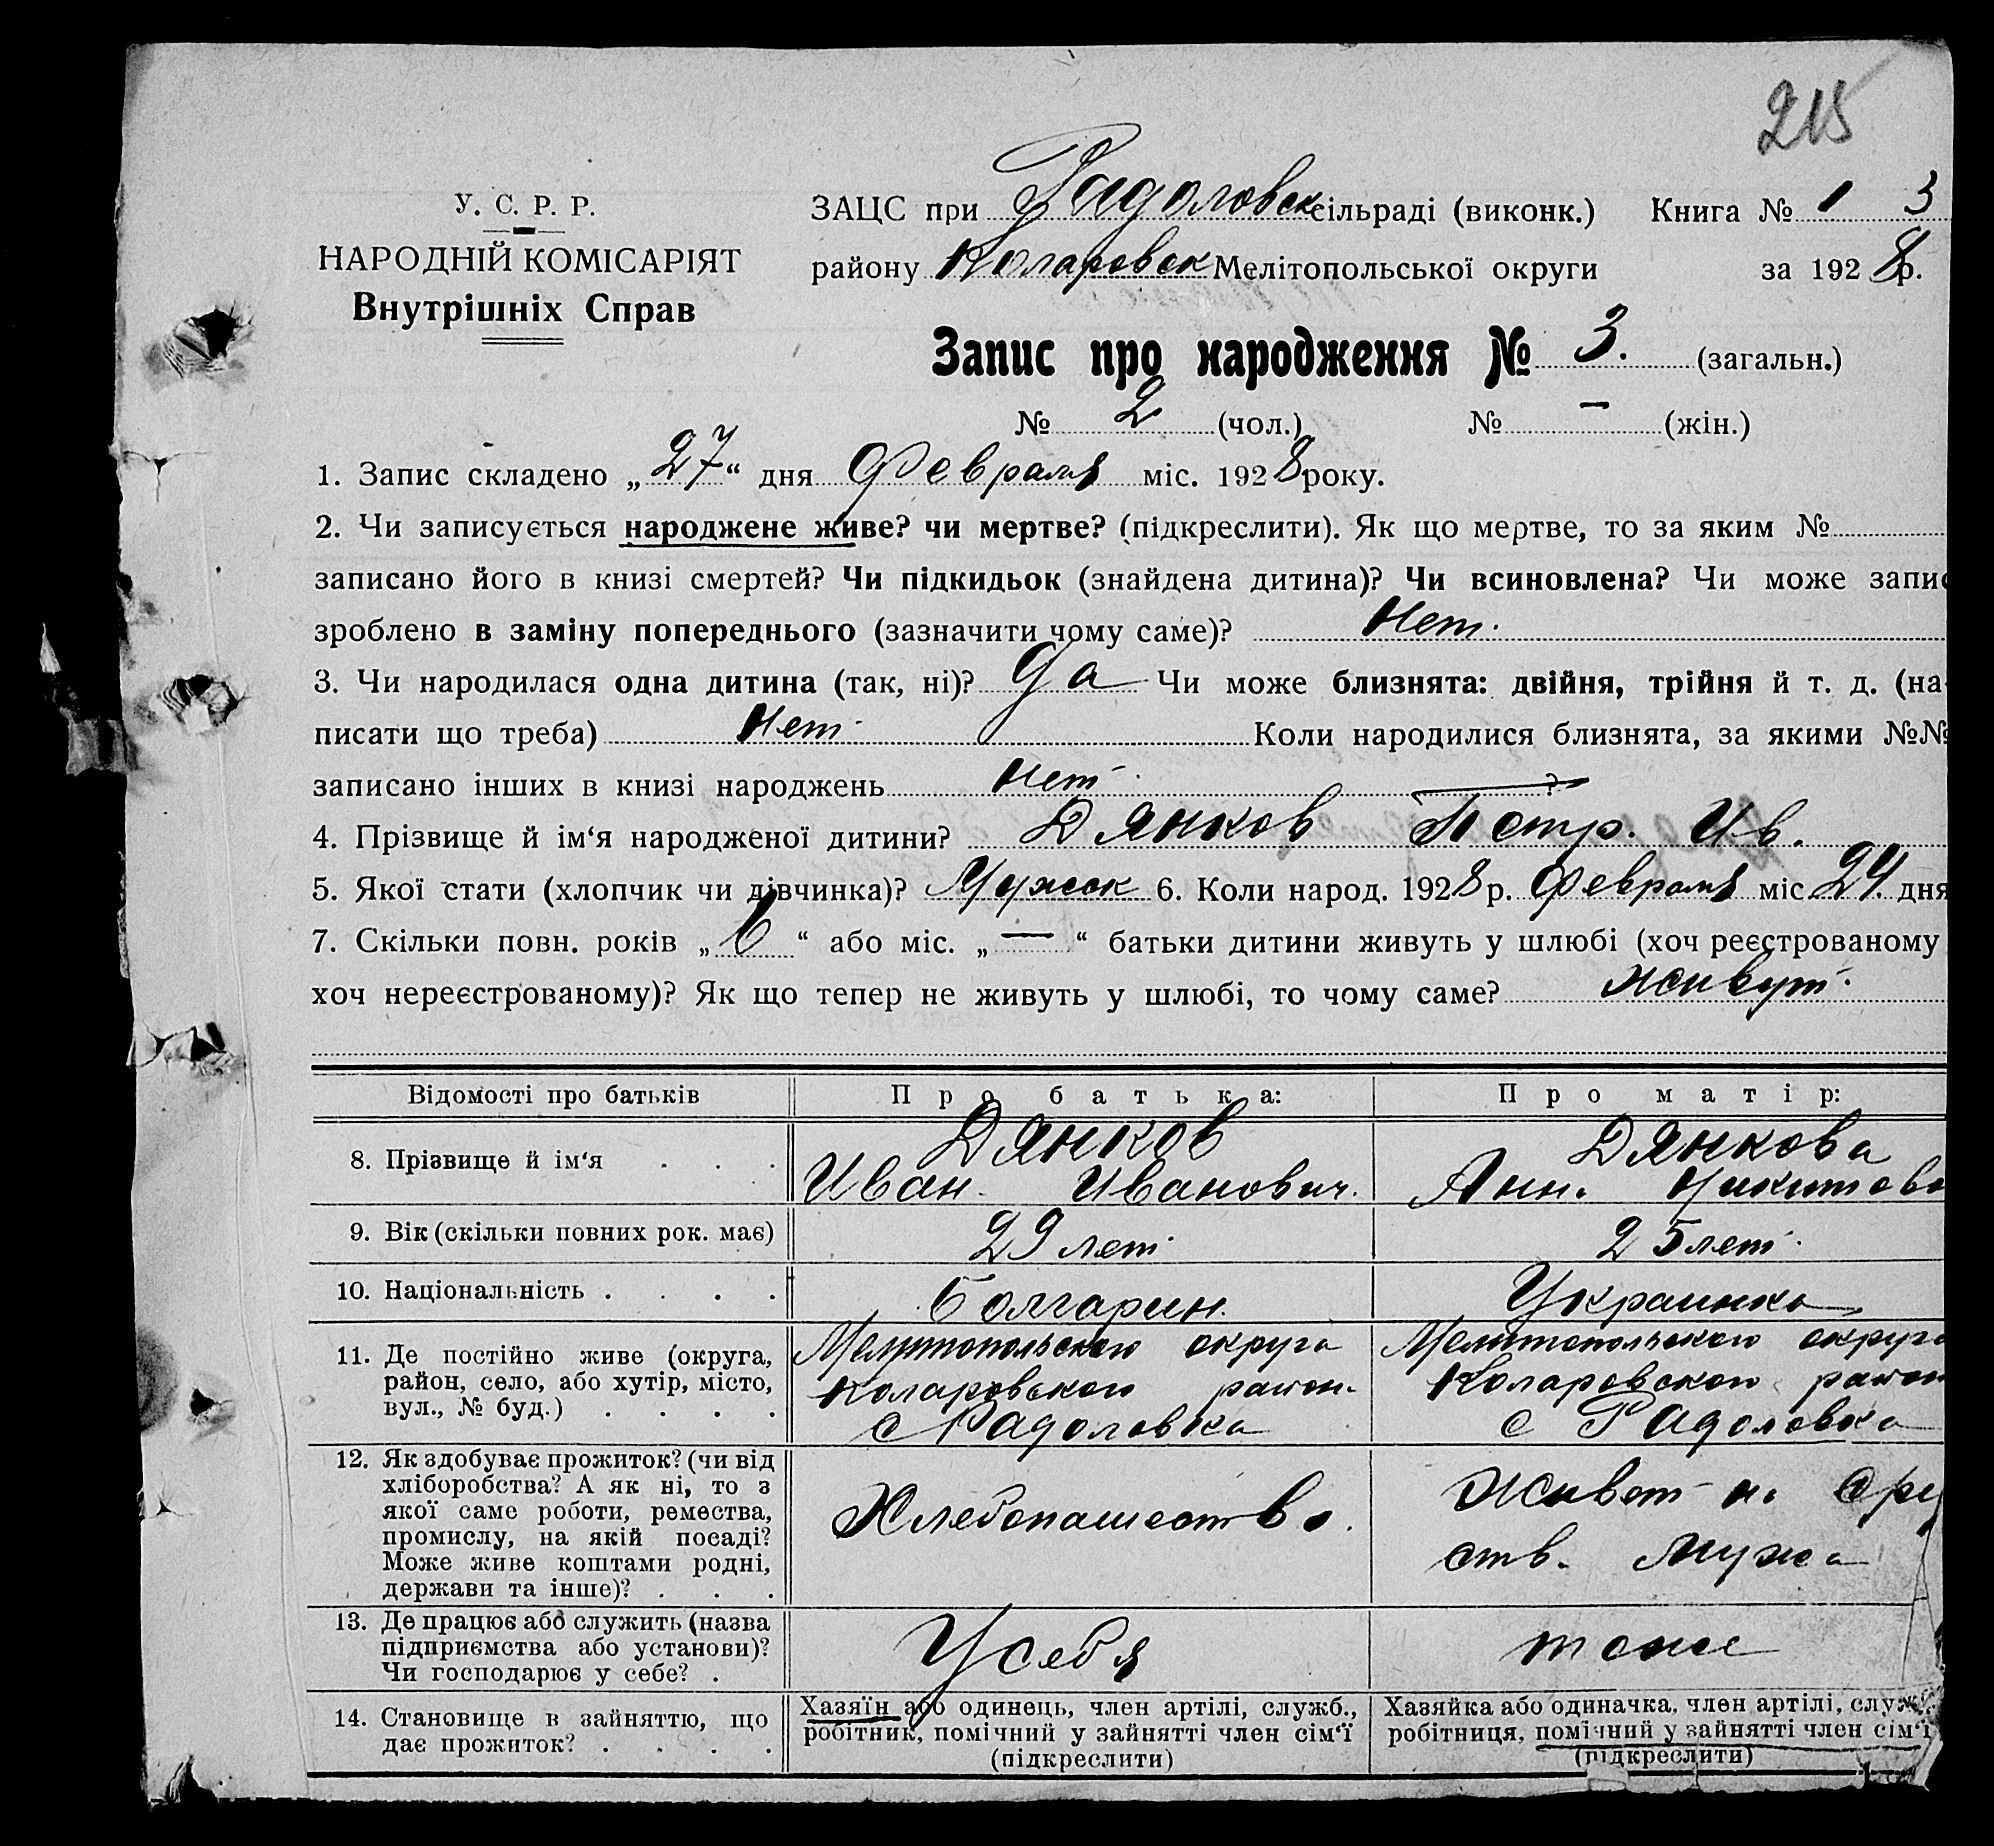 215
У. С. Р. Р.
НАРОДНІЙ КОМІСАРІЯТ
Внутрішніх Справ
ЗАЦС при Радоловск сільраді (виконк.) Книга № 1 3
району Коларовск Мелітопольської округи за 1928 р.
Запис про народження № 3. (загальн.)
№ 2 (чол.) № — (жін.)
1. Запис складено „27“ дня Февраля міс. 1928 року.
2. Чи записується народжене живе? чи мертве? (підкреслити). Як що мертве, то за яким №
записано його в книзі смертей? Чи підкидьок (знайдена дитина)? Чи всиновлена? Чи може запис
зроблено в заміну попереднього (зазначити чому саме)? Нет.
3. Чи народилася одна дитина (так, ні)? Да Чи може близнята: двійня, трійня й т. д. (на-
писати що треба) Нет Коли народилися близнята, за якими №№
записано інших в книзі народжень нет ?
4. Прізвище й ім‘я народженої дитини? Дянков Петр. Ив.
5. Якої стати (хлопчик чи дівчинка)? Мужск 6. Коли народ. 1928 р. Февраля міс 24. дня
7. Скільки повн. років „6“ або міс. „—“ батьки дитини живуть у шлюбі (хоч реєстрованому
хоч нереєстрованому)? Як що тепер не живуть у шлюбі, то чому саме? живут.
Відомості про батьків Про батька: Про матір:
8. Прізвище й ім‘я . . . Дянков Иван. Иванович. Дянкова Анн. Никитова
9. Вік (скільки повних рок. має) 29 лет 25 лет.
10. Національність . . . . Болгарин. Украинка
11. Де постійно живе (округа, район, село, або хутір, місто, вул., № буд.) . . . .
Мелитопольского округа Коларовского район. с Радоловка
Мелитопольского округа Коларовского район с Радоловка
12. Як здобуває прожиток? (чи від хліборобства? А як ні, то з якої саме роботи, ремества, промислу, на якій посаді? Може живе коштами родні, держави та інше)? . . .
Хлебопашество.
живет н. сред
ств. мужа
13. Де працює або служить (назва підприємства або установи)? Чи господарює у себе? .
У себя
тоже
14. Становище в зайняттю, що дає прожиток? . . . .
Хазяїн або одинець, член артілі, служб., робітник, помічний у зайнятті член сім‘ї (підкреслити)
Хазяйка або одиначка, член артілі, служб. робітниця, помічний у зайнятті член сім‘ї (підкреслити)